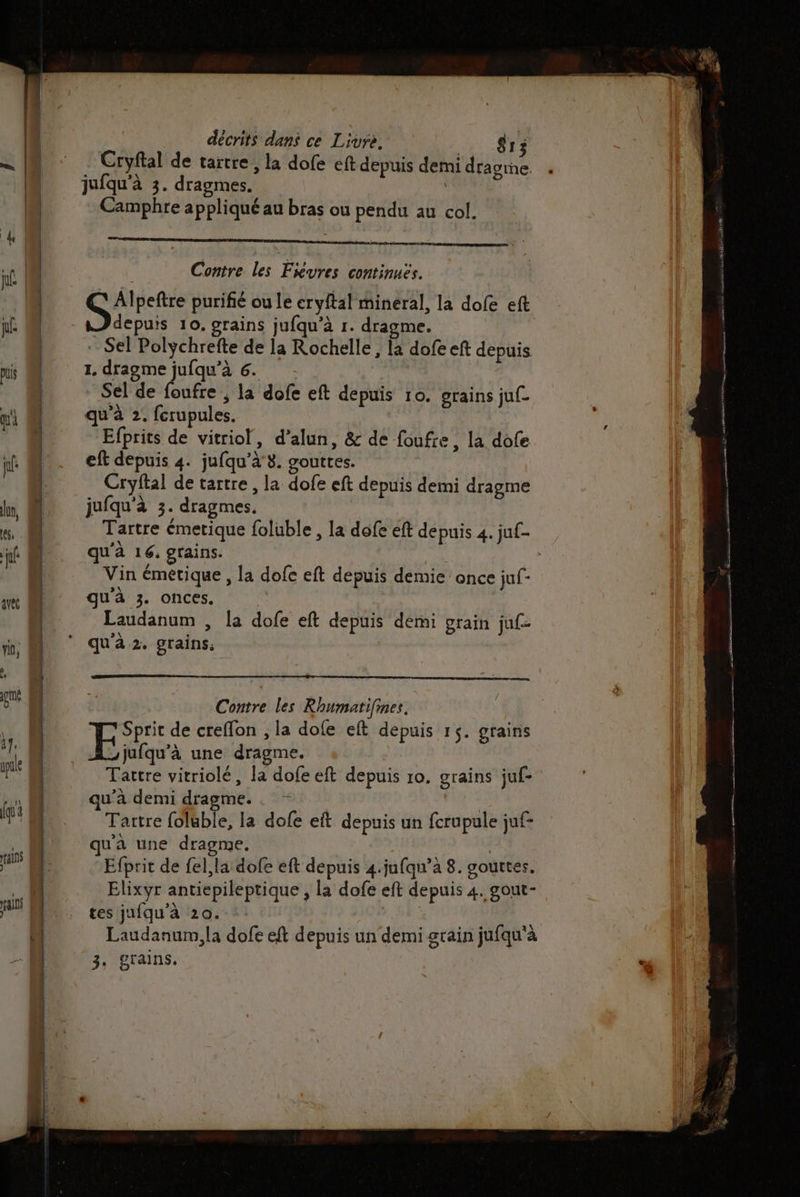 décrits dans ce Livre. 813
Cryſtal de tartre, la doſe eſt depuis demi dragme
juſqu'à 3. dragmes.
Camphre appliqué au bras ou pendu au col.
Contre les Fiévres continuës.
SAlpeſtre purifié ou le cryſtal mineral, la doſe eſt
depuis 10. grains juſqu'à 1. dragme.
Sel Polychreſte de la Rochelle, la doſe eſt depuis
1. dragme juſqu'à 6.
Sel de ſoufre, la doſe eſt depuis 10. grains juſ-
qu'à 2. ſcrupules.
Eſprits de vitriol, d'alun, & de ſoufre, la doſe
eſt depuis 4. juſqu'à 8. gouttes.
Cryſtal de tartre, la doſe eſt depuis demi dragme
juſqu'à 3. dragmes.
Tartre émetique ſoluble, la doſe eſt depuis 4. juſ-
qu'à 16. grains.
Vin émetique, la doſe eſt depuis demie once juſ-
qu'à 3. onces.
Laudanum, la doſe eſt depuis demi grain juſ-
qu'à 2. grains.
Contre les Rhumatiſmes.
ESprit de creſſon, la doſe eſt depuis 15. grains
juſqu'à une dragme.
Tartre vitriolé, la doſe eſt depuis 10. grains juſ-
qu'à demi dragme.
Tartre ſoluble, la doſe eſt depuis un ſcrupule juſ-
qu'à une dragme.
Eſprit de ſel, la doſe eſt depuis 4. juſqu'à 8. gouttes.
Elixyr antiepileptique, la doſe eſt depuis 4. gout-
tes juſqu'à 20.
Laudanum, la doſe eſt depuis un demi grain juſqu'à
3. grains.